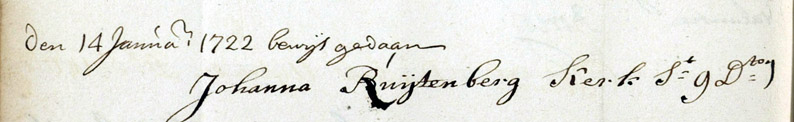 den 14 Janua.r: 1722 bewijs gedaan
Johanna Ruijtenberg Kerk St 9 Dito